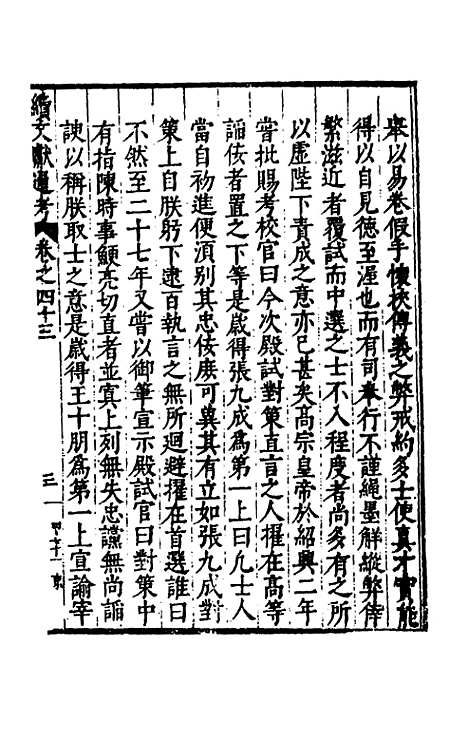 舉以易卷假手懷挾傳義之弊戒約多士使真才實能
得以自見德至渥也而有司奉行不謹繩墨解縱弊倖
繁滋近者覆試而中選之士不入程度者尚多有之所
以虛陛下責成之意亦已甚矣高宗皇帝於紹興二年
嘗批賜考校官曰今次殿試對策直言之人擢在高等
謟佞者置之下等是歲得張九成爲第一上曰凡士人
當自初進便須别其忠佞庶可冀其有立如張九成對
策上自朕躬下逮百執言之無所迴避擢在首選誰曰
不然至二十七年又嘗以御筆宣示殿試官曰對策中
有指陳時事鯁亮切直者並寘上列無失忠讜無尚謟
諛以稱朕取士之意是歲得王十朋爲第一上宣諭宰
續文獻通考 卷之四十三 三